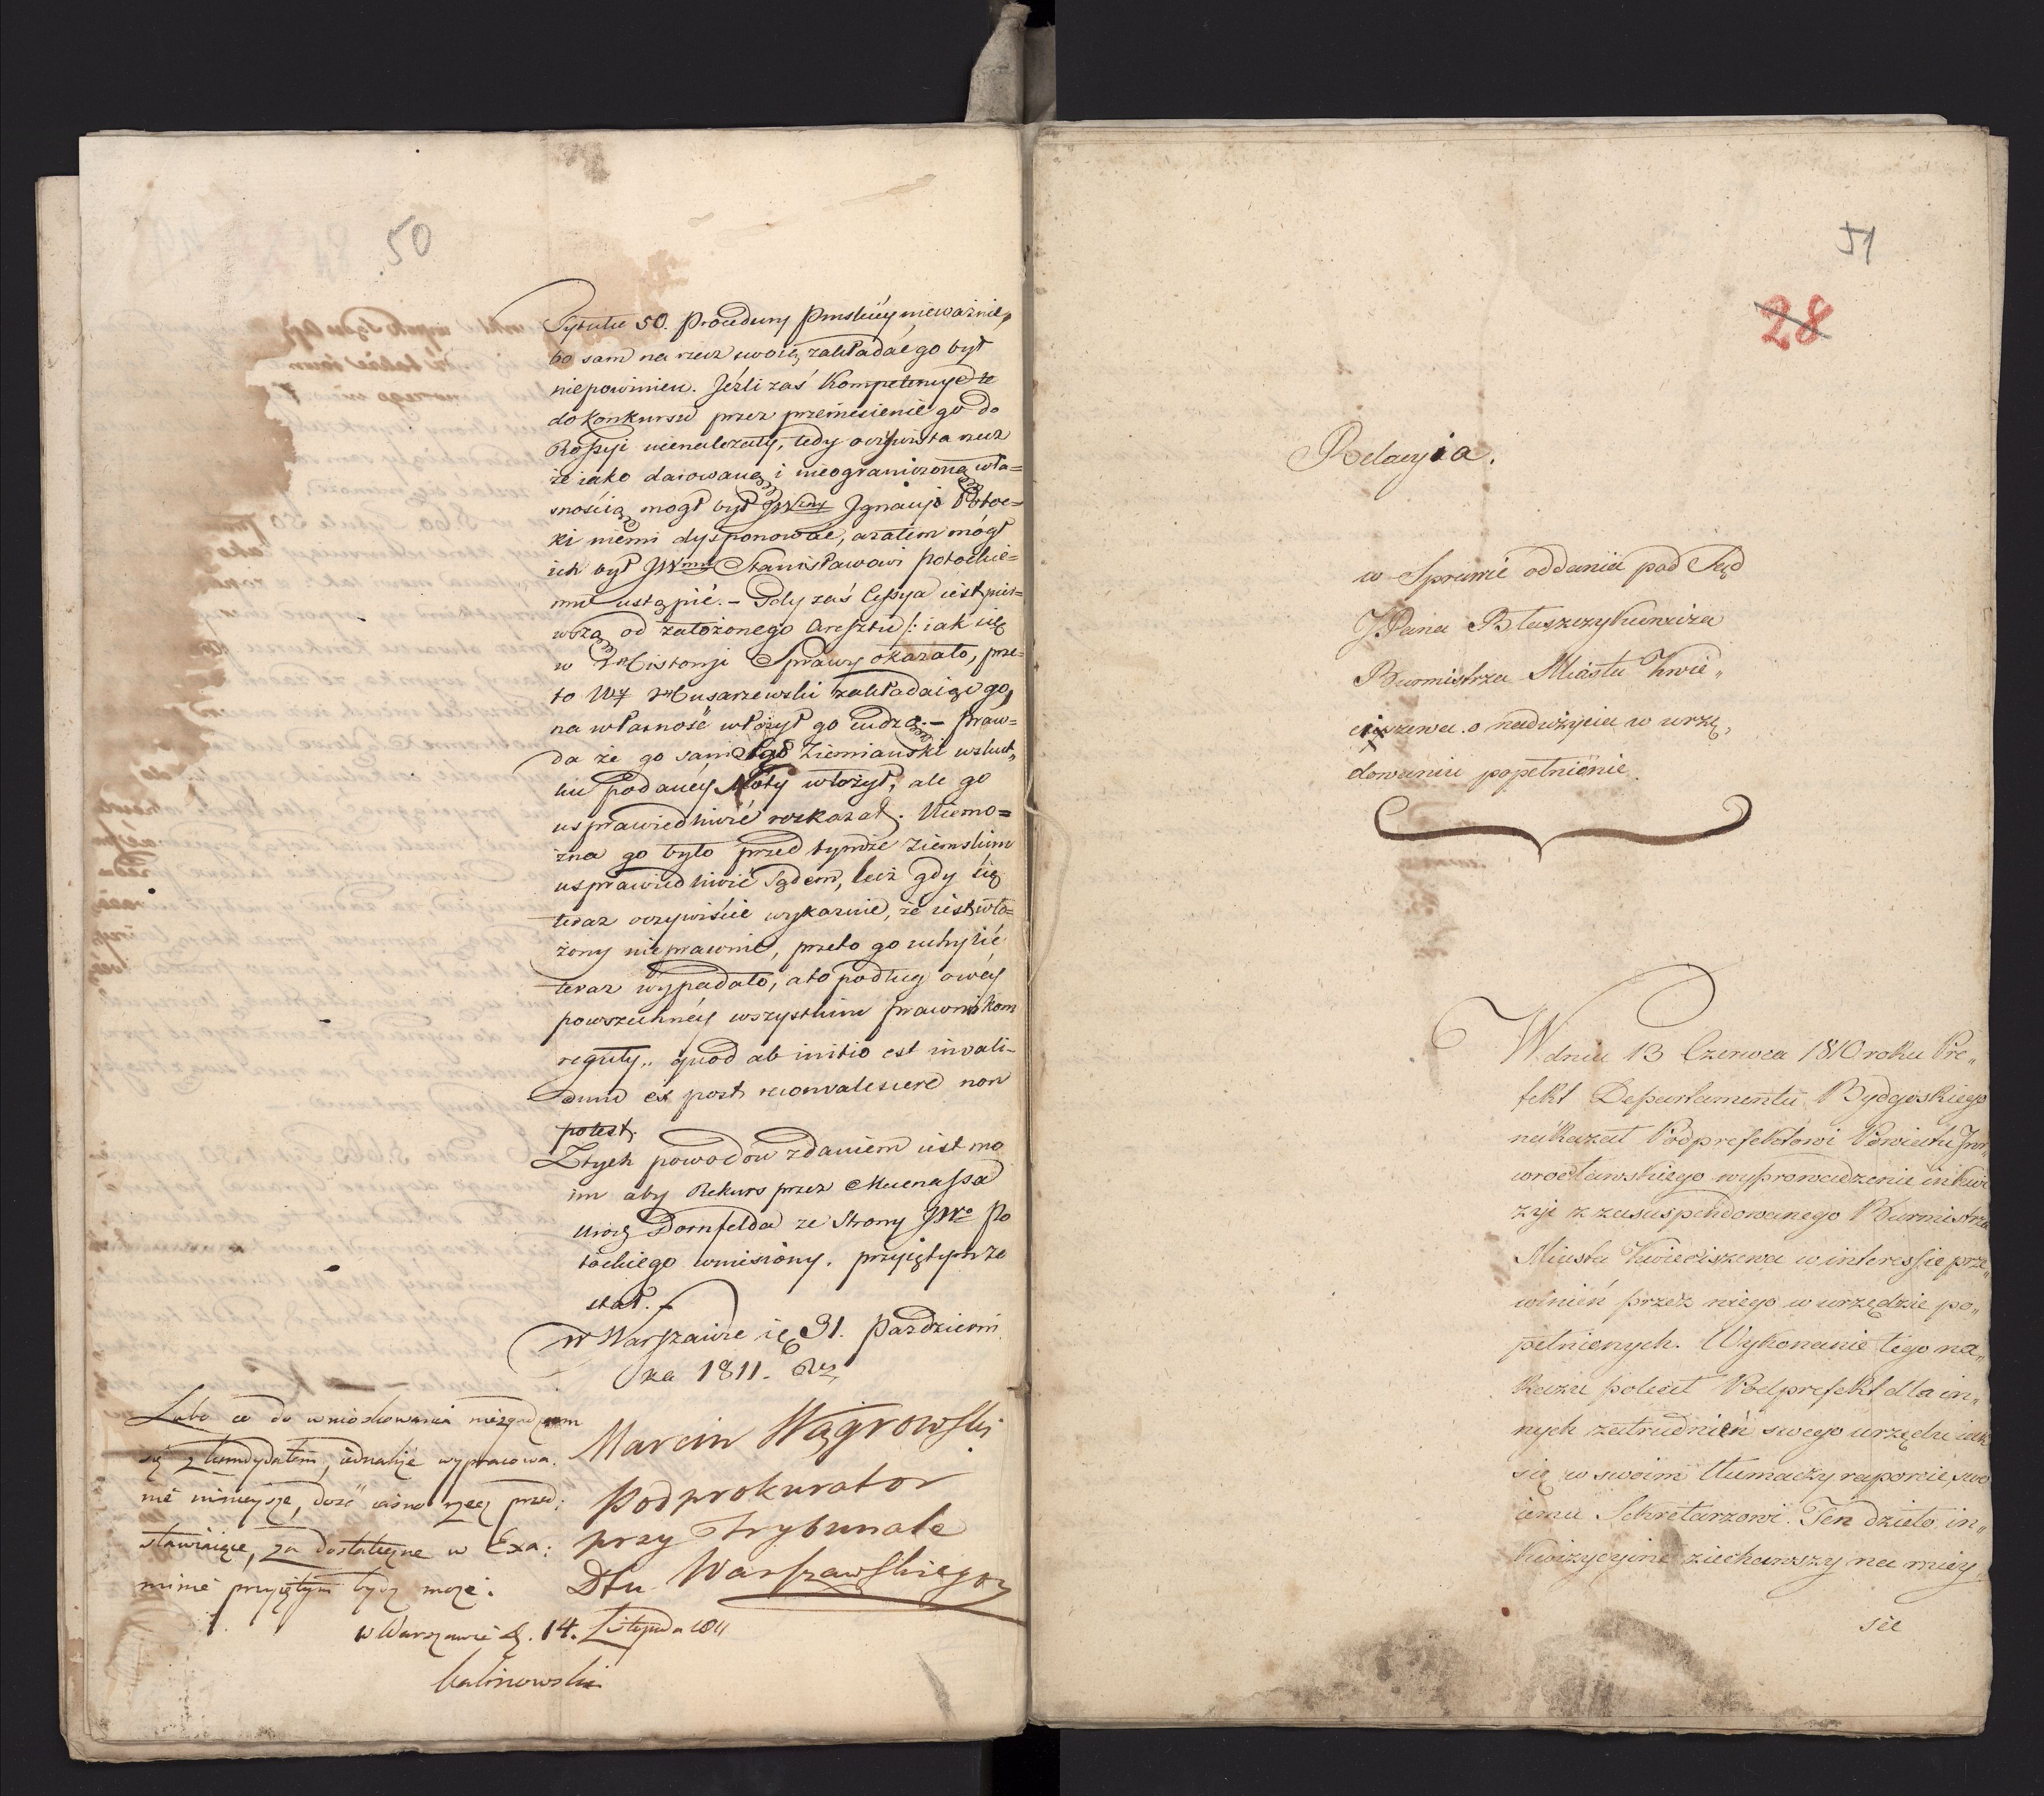 50
Tytułu 50. Procedury Pruskiey nieważnie,
bo sam na rzecz swoią zakładać go był
niepowinien. Jeźli zaś Kompetencye te
do Konkursu przez przeniesienie go do
Rossyi nienależały, tedy oczywista rzecz
że iako darowaną i nieograniczoną wła=
snością mogł był JWny Ignacy Potoc=
ki niemi dysponować, azatem mógł
ich był JWmu Stanisławowi Potockie=
mu ustąpić. – Gdy zaś Cessya iest pier=
wszą od założonego Aresztu /: iak się
w Historyi Sprawy okazało, prze=
to Wy Husarzewski zakładaiąc go,
na własność włożył go cudzą. – Praw=
da że go sam Sąd Ziemiański wskut„
ku podaney Noty włożył, ale go
usprawiedliwić rozkazał. Niemo=
żna go było przed tymże Ziemskim
usprawiedliwić Sądem, lecz gdy się
teraz oczywiście wykazuie, że iest wło=
żony nieprawnie, przeto go uchylić
teraz wypadało, a to podług owéy
powszechnéy wszystkim prawnikom
reguły„ quod ab initio est invali-
dum ex post reconvalescere non
potest.
Z tych powodów zdaniem iest mo
im aby Rekurs przez Mecenassa
Dornfelda ze Strony JWo Po
tockiego wniesiony, przyiętym zo
stał. –
w Warszawie d. 31. Październi
ka 1811. Ru
Marcin Wągrowski
Podprokurator
przy Trybunale
Dtu Warszawskiego
Lubo co do wnioskowania niezgadzam
się z kandydatem, iednakże wypracowa.
nie ninieysze, dość iasno rzecz przed:
stawiaiące, za dostateczne w Exa:
minie przyiętym być może.
w Warszawie d. 14. Listopada 1811
Kalinowski
51
28
Relacyia.
w Sprawie oddania pod Sąd
JPana Błaszczykiewicza
Burmistrza Miasta Kwie„
ciszewa o nadużycia w urzę„
dowaniu popełnione
W dniu 13 Czerwca 1810 roku Pre„
fekt Departamentu Bydgoskiego
nakazał Podprefektowi Powiatu Ino„
wrocławskiego wyprowadzenie inkwi
zyi z zasuspendowanego Burmistrza
Miasta Kwieciszewa w interessie prze„
winień przez niego w urzędzie po„
pełnionych. Wykonanie tego na„
kazu polecił Podprefekt dla in„
nych zatrudnień swego urzędu iak
się w swoim tłumaczy raporcie, swo
iemu Sekretarzowi. Ten dzieło in„
kwizycyine ziechawszy na miey
sce